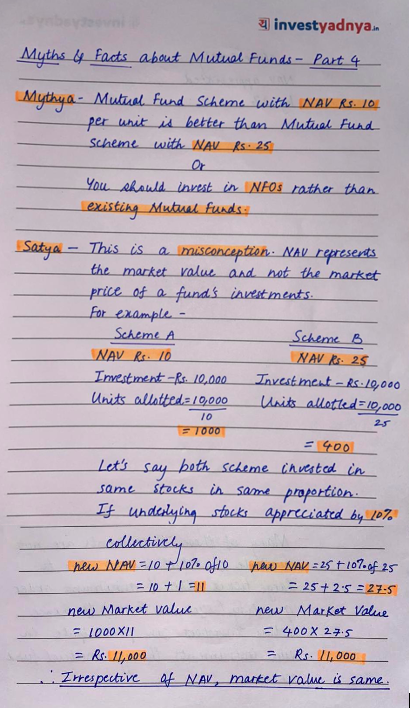 investyadnya.in
Myths & Facts about Mutual Funds - Part 4
Mythya - Mutual Fund Scheme with NAV Rs. 10
per unit is better than Mutual Fund
scheme with NAV Rs. 25
Or
You should invest in NFOs rather than
existing Mutual Funds.
Satya - This is a misconception. NAV represents
the market value and not the market
price of a fund's investments.
For example -
Scheme A Scheme B
NAV Rs. 10 NAV Rs. 25
Investment - Rs. 10,000 Investment - Rs. 10,000
Units allotted = 10,000 Units allotted = 10,000
10 25
= 1000
= 400
Let's say both scheme invested in
same stocks in same proportion.
If underlying stocks appreciated by 10%
collectively
new NAV = 10 + 10% of 10 new NAV = 25 + 10% of 25
= 10 + 1 = 11 = 25 + 2.5 = 27.5
new Market value new Market Value
= 1000 X 11 = 400 X 27.5
= Rs. 11,000 = Rs. 11,000
∴ Irrespective of NAV, market value is same.